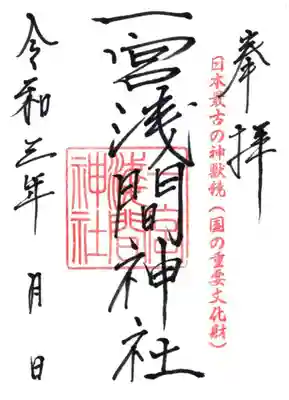 奉拝
日本最古の神獣鏡(国の重要文化財)
一宮浅間神社
令和三年 月 日